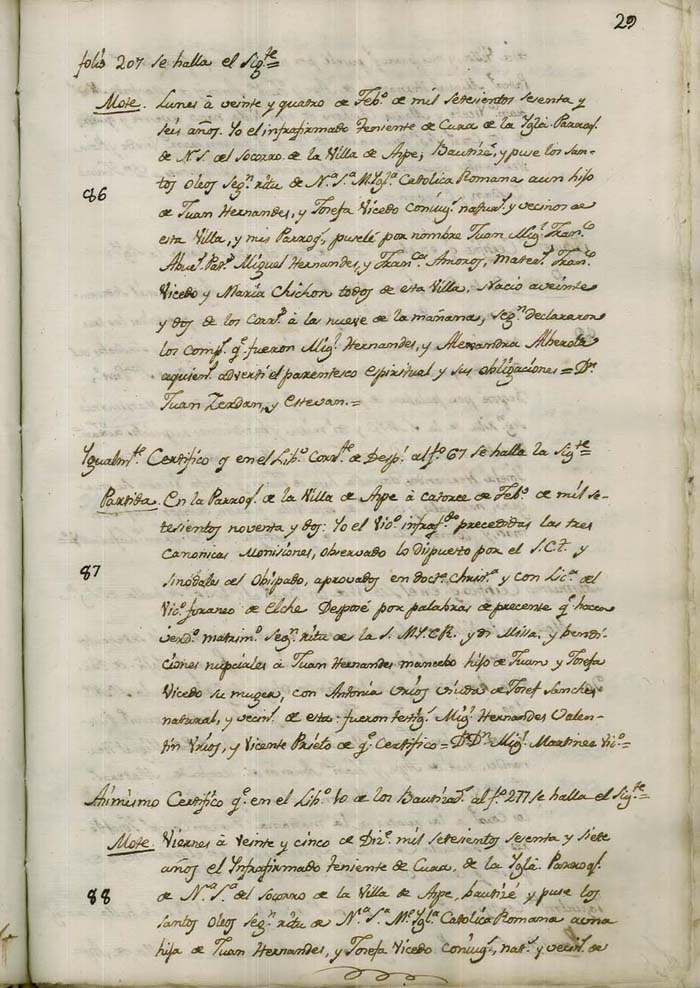 29
folio 207 se halla el Sig.te=
Mote. Lunes à veinte y quatro de Feb.o de mil setesientos sesenta y
seis años. Yo el infrafirmado Teniente de Cura de la Ygl.a Parroq.l
de N.S. del Socorro de la Villa de Aspe, Bautizé, y puse los san-
tos Oleos Seg.n ritu de N.a S.a M. Ygl.a Catolica Romana a un hijo
86
de Juan Hernandes, y Josefa Vicedo Conjug.s natur.s y vecinos de
esta Villa, y mis Parroq.s puselé por nombre Juan Mig.l Fran.co
Abue.s Pat.s Miguel Hernandes, y Fran.ca Amoros, mater.s Fran.co
Vicedo y Maria Chichon todos de esta Villa, Nació a veinte
y dos de los Corr.s à las nueve de la mañana, Seg.n declararon
los Comp.s q.e fueron Mig.l Hernandes, y Alexandra Alberola
a quien.s advertí el parentesco Espiritual y sus obligaciones = D.n
Juan Zerdan, y Estevan.=
Ygualm.te Certifico q en el Lib.o Corr.te de Desp.s al f.o 67 se halla la Sig.te
Partida. En la Parroq.l de la Villa de Aspe à catorce de Feb.o de mil se-
tesientos noventa y dos: Yo el Vic.o infraf.do precedidas las tres
Canonicas Monisiones, observado lo dispuesto por el S.C.t. y
87
Sinodales del Obispado, aprovados en doct.a Christ.a y con Lic.a del
Vic.o foraneo de Elche Desposé por palabras de precente q.e hacen
verd.o matrim.o Seg.n ritu de la S.M.Y.C.R. y dí Missa y bendi-
ciones nupciales à Juan Hernandes mancebo hijo de Juan y Josefa
Vicedo su muger, con Antonia Vrios Viuda de Josef Sanches
natural, y vecin.s de esta: fueron testig.s Mig.l Hernandes Valen-
tin Vrios, y Vicente Prieto de q.e Certifico = D.r D.n Mig.l Martinez Vic.o=
Asimismo Certifico q.e en el Lib.o 10 de los Bautizad.s al f.o 277 se halla el Sig.te=
Mote. Viernes à Veinte y cinco de Diz.e mil setesientos sesenta y siete
años el Infrafirmado Teniente de Cura, de la Ygl.a Parroq.l
88
de N.a S.a del Socorro de la Villa de Aspe, bautizé y puse los
santos Oleos Seg.n ritu de N.a S.a M.e Ygl.a Catolica Romana a una
hija de Juan Hernandes, y Josefa Vicedo Conjug.s, nat.s y vecin.s de